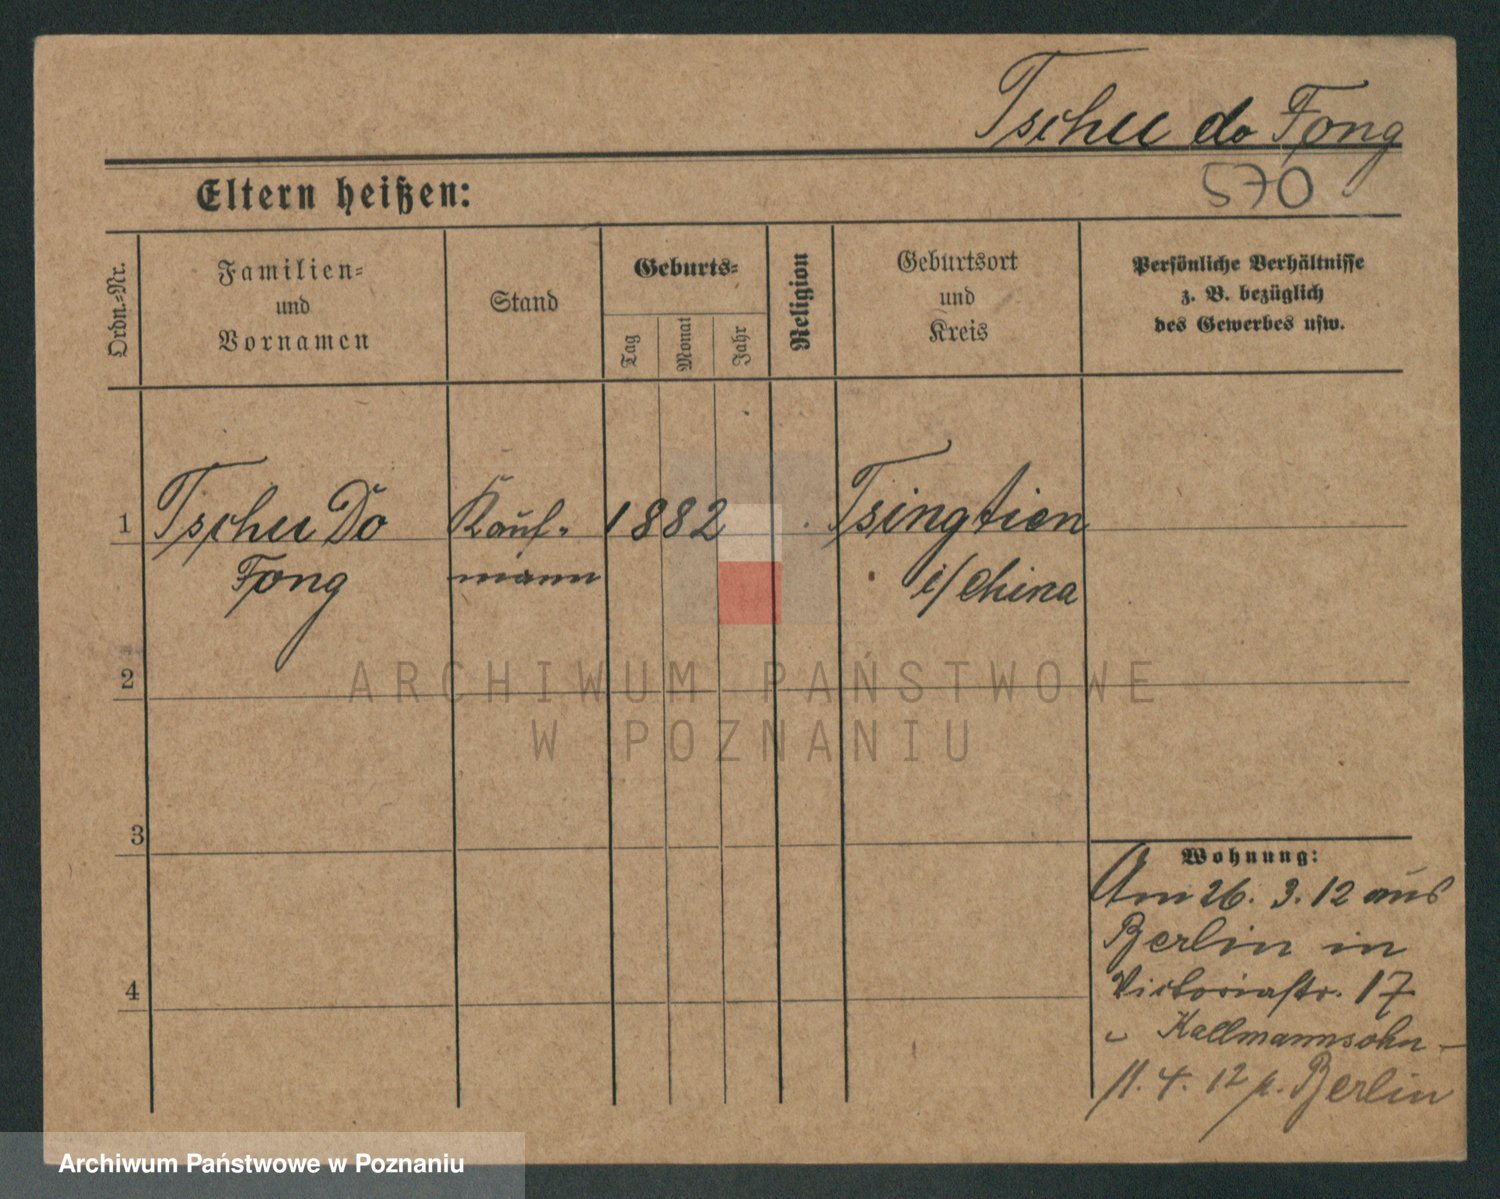 Tschu do Fong
570
Eltern heißen:
Ordn.-Nr.
Familien-
und
Vornamen
Stand
Geburts-
Tag
Monat
Jahr
Religion
Geburtsort
und
Kreis
Persönliche Verhältnisse
z. B. bezüglich
des Gewerbes usw.
1
Tschu Do
Fong
Kauf-
mann
1882
Tsingtien
i/China
2
3
4
Wohnung:
Am 26. 3. 12 aus
Berlin in
Victoriastr. 17
Kallmannsohn
11. 4. 12 n. Berlin
ARCHIWUM PAŃSTWOWE
W POZNANIU
Archiwum Państwowe w Poznaniu